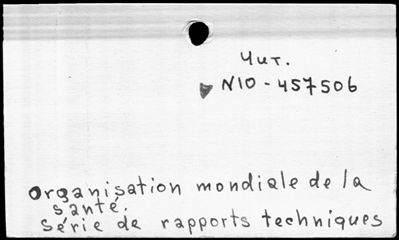 Чит.
N10-457506
Organisation mondiale de la
santé.
Série de rapports techniques